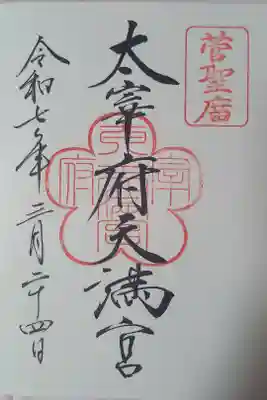 菅聖廟
太宰府天満宮
令和七年三月二十四日